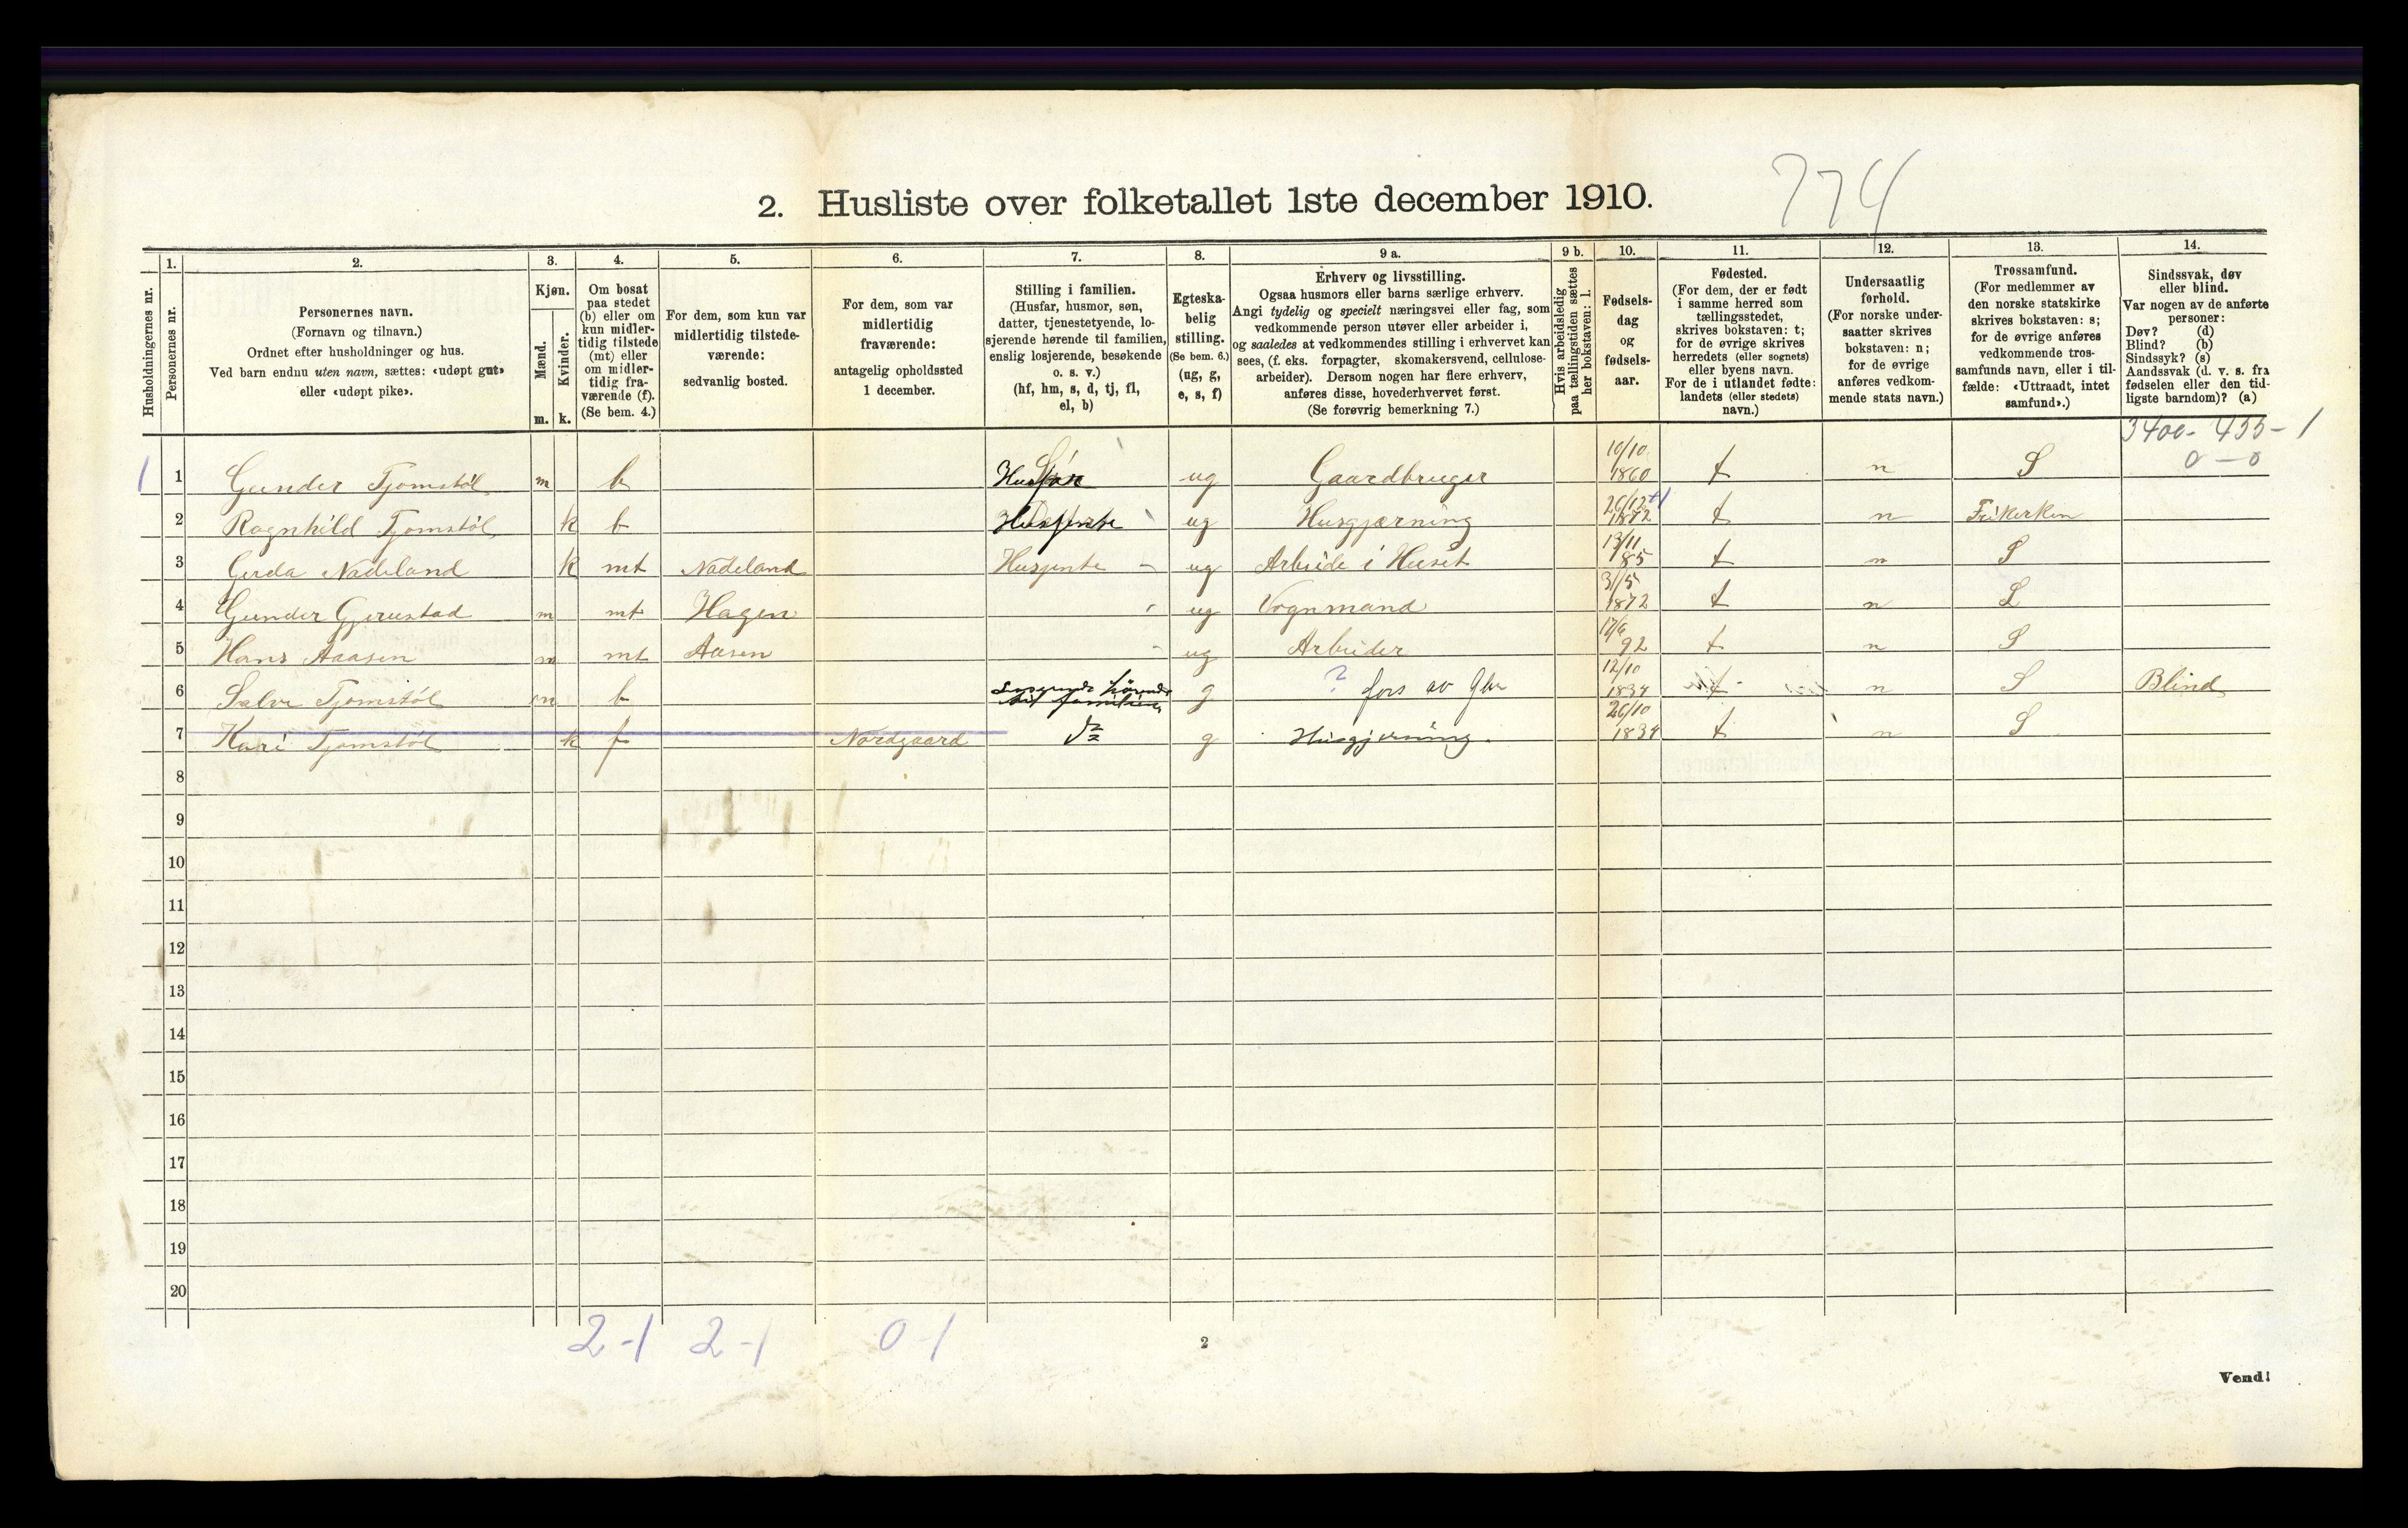 2. Husliste over folketallet 1ste december 1910.
774
Husholdningernes nr.
1.
Personernes nr.
2.
Personernes navn.
(Fornavn og tilnavn.)
Ordnet efter husholdninger og hus.
Ved barn endnu uten navn, sættes: «udøpt gut»
eller «udøpt pike».
3.
Kjøn.
Mænd.
Kvinder.
m. k.
4.
Om bosat
paa stedet
(b) eller om
kun midler-
tidig tilstede
(mt) eller
om midler-
tidig fra-
værende (f).
(Se bem. 4.)
5.
For dem, som kun var
midlertidig tilstede-
værende:
sedvanlig bosted.
6.
For dem, som var
midlertidig
fraværende:
antagelig opholdssted
1 december.
7.
Stilling i familien.
(Husfar, husmor, søn,
datter, tjenestetyende, lo-
sjerende hørende til familien,
enslig losjerende, besøkende
o. s. v.)
(hf, hm, s, d, tj, fl,
el, b)
8.
Egteska-
belig
stilling.
(Se bem. 6.)
(ug, g,
e, s, f)
9 a.
Erhverv og livsstilling.
Ogsaa husmors eller barns særlige erhverv.
Angi tydelig og specielt næringsvei eller fag, som
vedkommende person utøver eller arbeider i,
og saaledes at vedkommendes stilling i erhvervet kan
sees, (f. eks. forpagter, skomakersvend, cellulose-
arbeider). Dersom nogen har flere erhverv,
anføres disse, hovederhvervet først.
(Se forøvrig bemerkning 7.)
9 b.
Hvis arbeidsledig
paa tællingstiden sættes
her bokstaven: l.
10.
Fødsels-
dag
og
fødsels-
aar.
11.
Fødested.
(For dem, der er født
i samme herred som
tællingsstedet,
skrives bokstaven: t;
for de øvrige skrives
herredets (eller sognets)
eller byens navn.
For de i utlandet fødte:
landets (eller stedets)
navn.)
12.
Undersaatlig
forhold.
(For norske under-
saatter skrives
bokstaven: n;
for de øvrige
anføres vedkom-
mende stats navn.)
13.
Trossamfund.
(For medlemmer av
den norske statskirke
skrives bokstaven: s;
for de øvrige anføres
vedkommende tros-
samfunds navn, eller i til-
fælde: «Uttraadt, intet
samfund».)
14.
Sindssvak, døv
eller blind.
Var nogen av de anførte
personer:
Døv? (d)
Blind? (b)
Sindssyk? (s)
Aandssvak (d. v. s. fra
fødselen eller den tid-
ligste barndom)? (a)
3400 - 455 - 1
0 - 0
1 1 Gunder Tjomstøl m b Søn ug Gaardbruger 10/10 1860 t n S
2 Ragnhild Tjomstøl k b Husjente ug Husgjærning 26/12 1872 t n Frikerken
3 Gerda Nadeland k mt Nadeland Husjente ug Arbeide i Huset 13/11 85 t n S
4 Gunder Gjerustad m mt Hagen ug Vognmand 3/5 1872 t n S
5 Hans Aaasen m mt Aasen ug Arbeider 17/6 92 t n S
6 Salve Tjomstøl m b hörende til familien g ? fors av Gbr 12/10 1834 t n S Blind
7 Kari Tjomstøl k f Nordgaard do g Husgjerning. 26/10 1834 t n S
8
9
10
11
12
13
14
15
16
17
18
19
20
2-1 2-1 0-1
2
Vend!